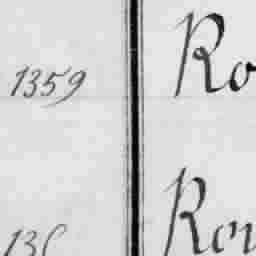 1359 Ro
136 Rou